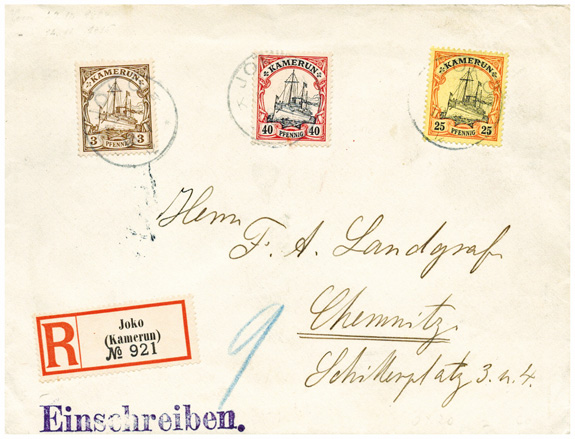 KAMERUN
3 3
PFENNIG
JOKO
KAMERUN
40 40
PFENNIG
KAMERUN
25 25
PFENNIG
Herrn
F. A. Landgraf
Chemnitz
Schillerplatz 3. u. 4.
R
Joko
(Kamerun)
№ 921
9
Einschreiben.